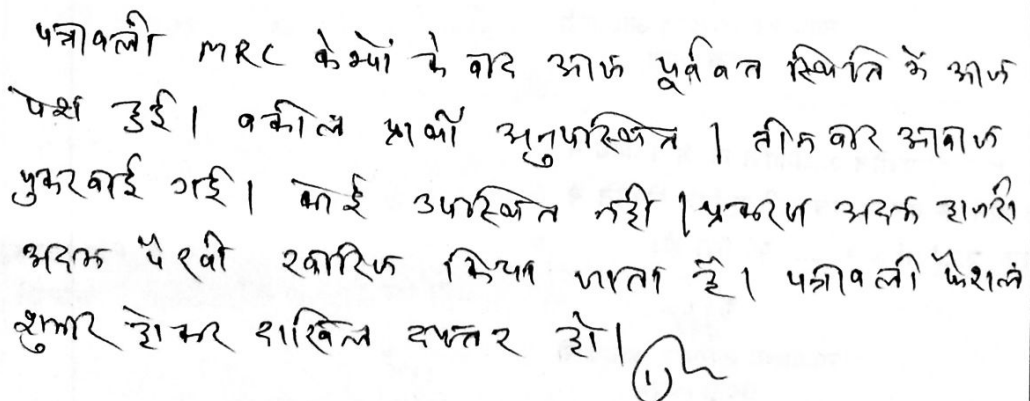 पत्रावली MRC केम्पों के बाद आज पूर्ववत स्थिति में आज
पेश हुई। वकील प्रार्थी अनुपस्थित। तीन बार आवाज
पुकरवाई गई। कोई उपस्थित नहीं। प्रकरण अदम हाजरी
अदम पैरवी खारिज किया जाता है। पत्रावली फैशल
शुमार होकर दाखिल दफ्तर हो।